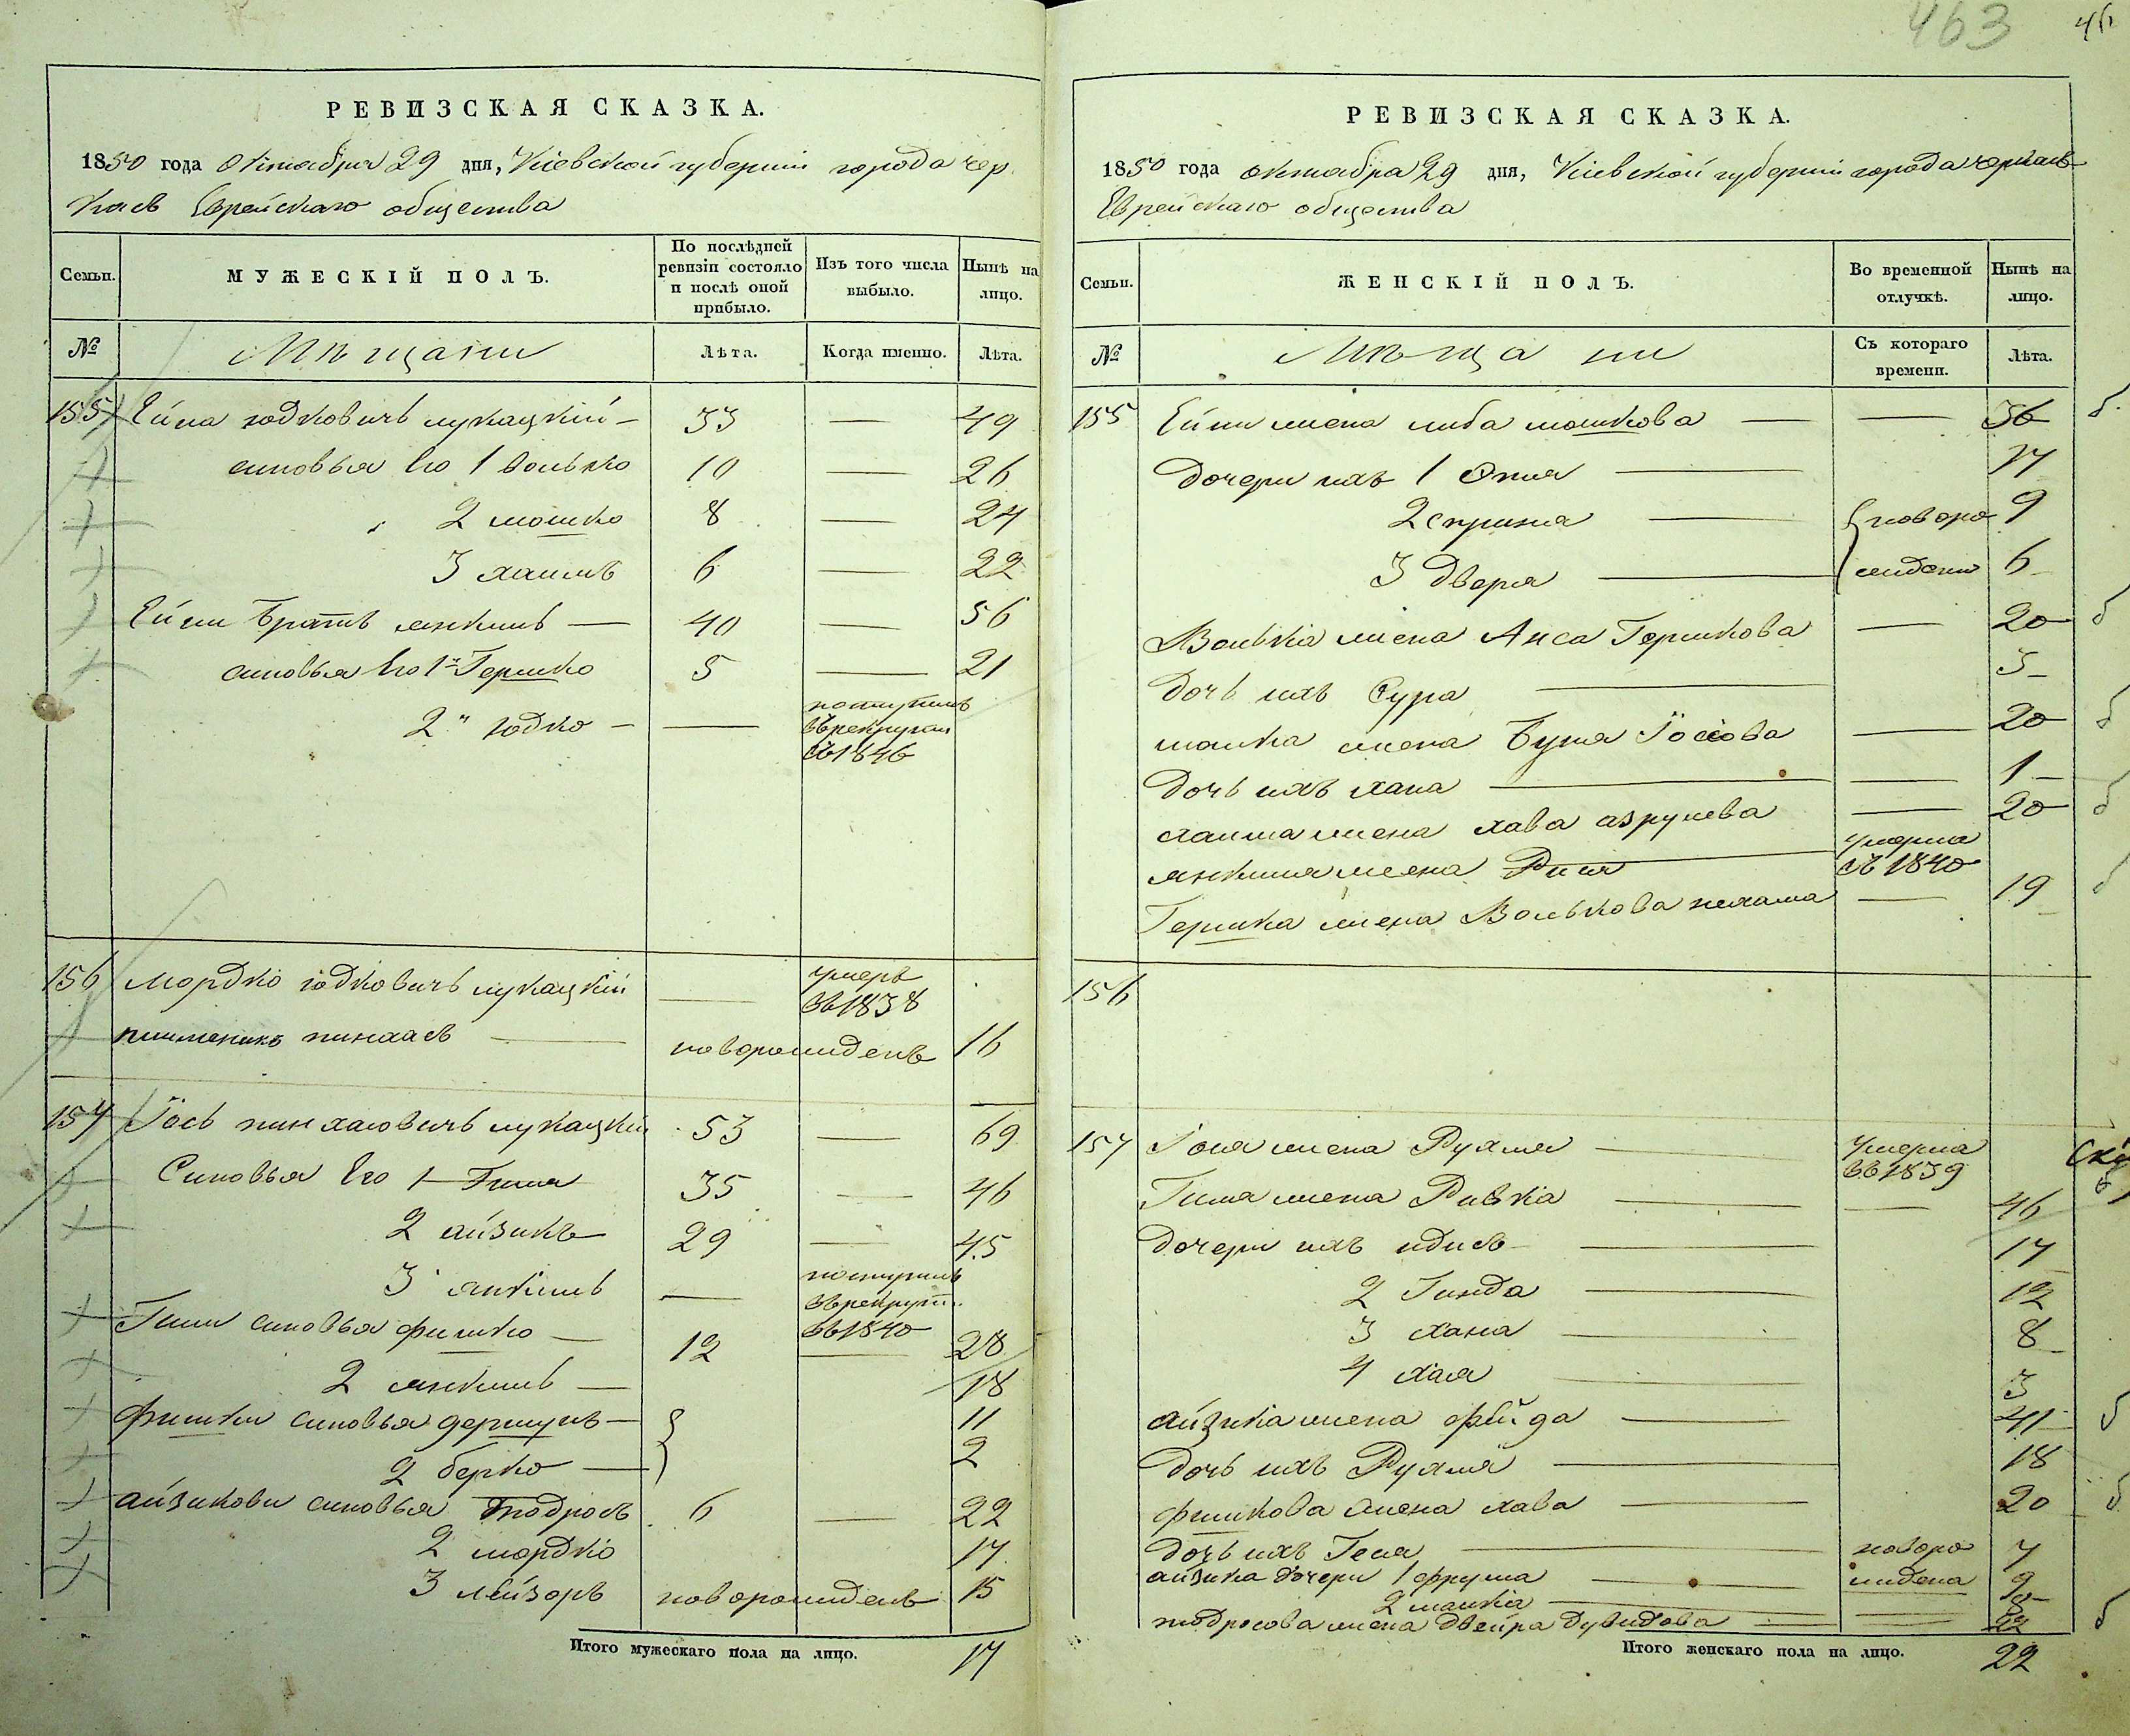 463
46
РЕВИЗСКАЯ СКАЗКА.
1850 года Октября 29 дня, Кіевской губерніи города Чер
касъ Еврейскаго общества
Семьи.
МУЖЕСКІЙ ПОЛЪ.
По послѣдней ревизіи состояло и послѣ оной прибыло.
Изъ того числа выбыло.
Нынѣ на лицо.
№
Мѣщани
Лѣта.
Когда именно.
Лѣта.
155 Ейна юдковичъ лукацкій — 33 — 49
синовья Его 1 волько 10 — 26
2 мошко 8 — 24
3 хаимъ 6 — 22
Ейни Братъ янкиль — 40 — 56
синовья Его 1й Гершко 5 — 21
2" юдко — — поступилъ
въ рекруты
въ 1846
156 мордко іодковичъ лукацкій — умеръ
въ 1838
племеникъ пинхасъ — новорожденъ 16
157 Іось пинхасовичъ лукацкій 53 — 69
Синовья Его 1 Гима 35 — 46
2 айзикъ 29 — 45
3 янкиль — поступилъ
въ рекрут.
въ 1840
Гими синовья фишко — 12 — 28
2 янкиль — 18
фишки синовья дершунъ — 11
2 берко — 2
айзикови синовья тодросъ 6 — 22
2 мордко 17
3 лейзоръ новорожденъ 15
Итого мужескаго пола на лицо. 17
РЕВИЗСКАЯ СКАЗКА.
1850 года октября 29 дня, Кіевской губерніи города черкасъ
Еврейскаго общества
Семьи.
ЖЕНСКІЙ ПОЛЪ.
Во временной отлучкѣ.
Нынѣ на лицо.
№
Мѣщани
Съ котораго времени.
Лѣта.
155 Ейни жена либа мошкова — — 36
дочери ихъ 1 Эння — 17
2 сприна — новоро 9
3 дворя — жидени 6
Волькіа жена Анса Гершкова — 20
дочь ихъ Сура — 3
мошка жена Буня Іосіова — 20
дочь ихъ хана — — 1
хаима жена хава азрулева — 20
янкиля жена Рися умерла
въ 1840
Гершка жена Волькова нехама — 19
156
157 Іося жена Рухля — умерла
въ 1839
Гима жена Ривкіа — — 46
дочери ихъ идись — 17
2 Гинда — 12
3 хана — 8
4 хая — 3
айзика жена фейга — 41
дочь ихъ Рухля — 18
фишкова жена хава — 20
дочь ихъ Геня — новоро 7
айзика дочери 1 фрума — жидена 9
2 малкіа —
тодросова жена двейра дувидова — — 22
Итого женскаго пола на лицо. 22